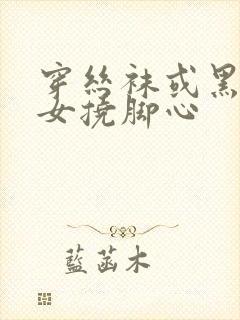 穿丝袜或黑
女挠脚心
蓝菡木